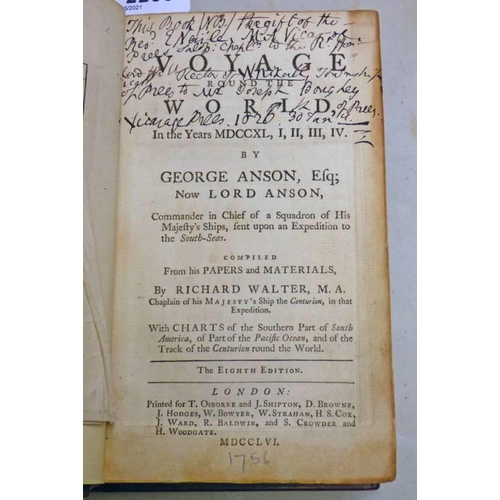 This Book was the gift of the
Revd
Vicar of
Prees
Chapln to the Rt Hon
Lord
Rector of
of Prees to
Joseph
of Prees
Vicarage Prees. 1826. 30
A
VOYAGE
ROUND THE
WORLD,
In the Years MDCCXL, I, II, III, IV.
BY
GEORGE ANSON, Eſq;
Now LORD ANSON,
Commander in Chief of a Squadron of His
Majeſty's Ships, ſent upon an Expedition to
the South-Seas.
COMPILED
From his PAPERS and MATERIALS,
By RICHARD WALTER, M. A.
Chaplain of his MAJESTY's Ship the Centurion, in that
Expedition.
With CHARTS of the Southern Part of South
America, of Part of the Pacific Ocean, and of the
Track of the Centurion round the World.
The EIGHTH EDITION.
LONDON:
Printed for T. OSBORNE and J. SHIPTON, D. BROWNE,
J. HODGES, W. BOWYER, W. STRAHAN, H. S. COX,
J. WARD, R. BALDWIN, and S. CROWDER and
H. WOODGATE.
MDCCLVI.
1756